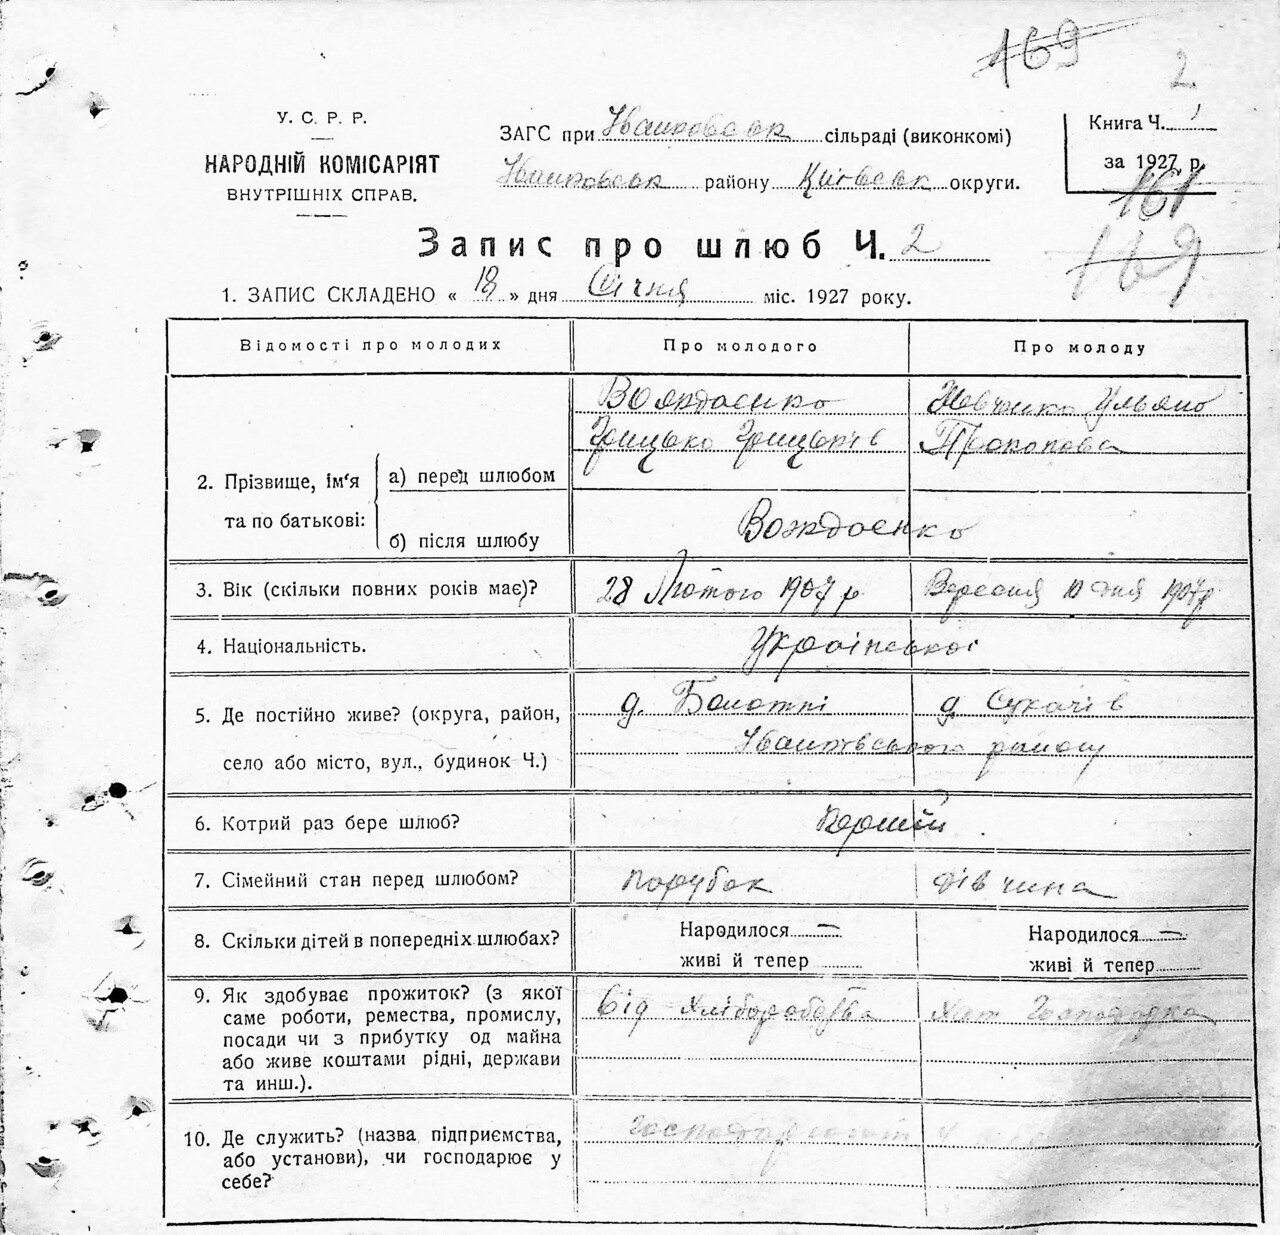 169
2
У. С. Р. Р.
НАРОДНІЙ КОМІСАРІЯТ
ВНУТРІШНІХ СПРАВ.
ЗАГС при Іванковськ сільраді (виконкомі)
Іванковськ району Київськ округи.
Книга Ч. 1
за 1927 р.
161
169
Запис про шлюб Ч. 2
1. ЗАПИС СКЛАДЕНО « 18 » дня Січня міс. 1927 року.
Відомості про молодих
Про молодого
Про молоду
2. Прізвище, ім'я та по батькові:
а) перед шлюбом
Вождаєнко
Грицько Грицьків
Ульяно
Прокопова
б) після шлюбу
Вождаєнко
3. Вік (скільки повних років має)?
28 Лютого 1907 р
Вересня 10 дня 1907 р
4. Національність.
Української
5. Де постійно живе? (округа, район,
село або місто, вул., будинок Ч.)
д. Болотні
д Сукачів
Іванківського району
6. Котрий раз бере шлюб?
Перший
7. Сімейний стан перед шлюбом?
Порубок
Дівчина
8. Скільки дітей в попередніх шлюбах?
Народилося —
живі й тепер
Народилося —
живі й тепер
9. Як здобуває прожиток? (з якої
саме роботи, ремества, промислу,
посади чи з прибутку од майна
або живе коштами рідні, держави
та инш.).
Від Хліборобства
Хат Господарка
10. Де служить? (назва підприємства,
або установи), чи господарює у
себе?